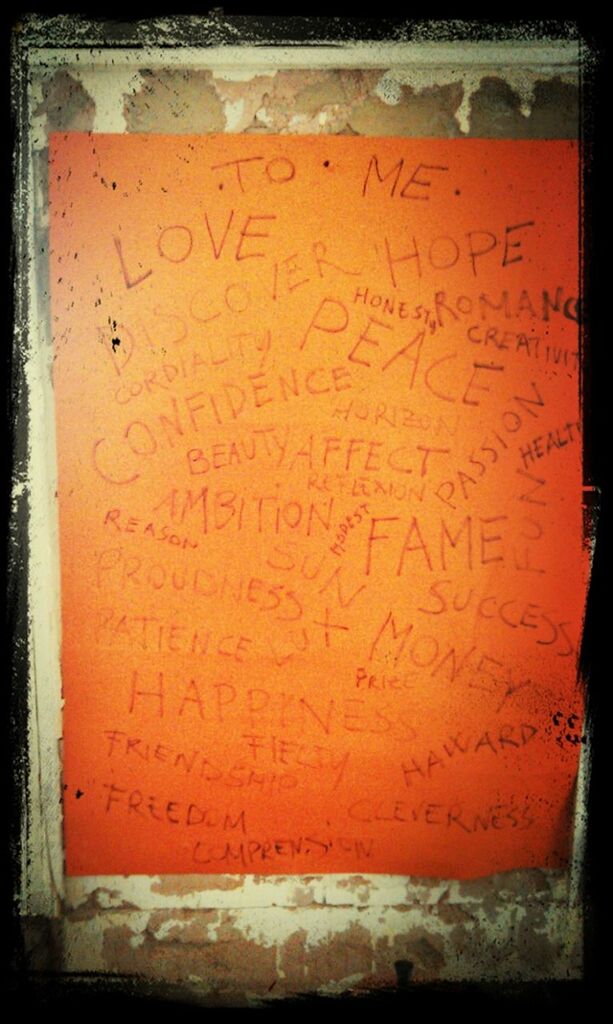 . TO . ME .
LOVE HOPE
DISCOVER
HONESTY ROMANC
CREATIVIT
CORDIALITY PEACE
CONFIDENCE
HORIZON
PASSION
HEALTH
BEAUTY AFFECT
REFLEXION
FUN
AMBITION
MODEST
REASON
FAME
SUN
PROUDNESS
SUCCESS
PATIENCE
MONEY
PRICE
HAPPINESS
FRIENDSHIP
HAWARD
FREEDOM
CLEVERNESS
COMPRENSION